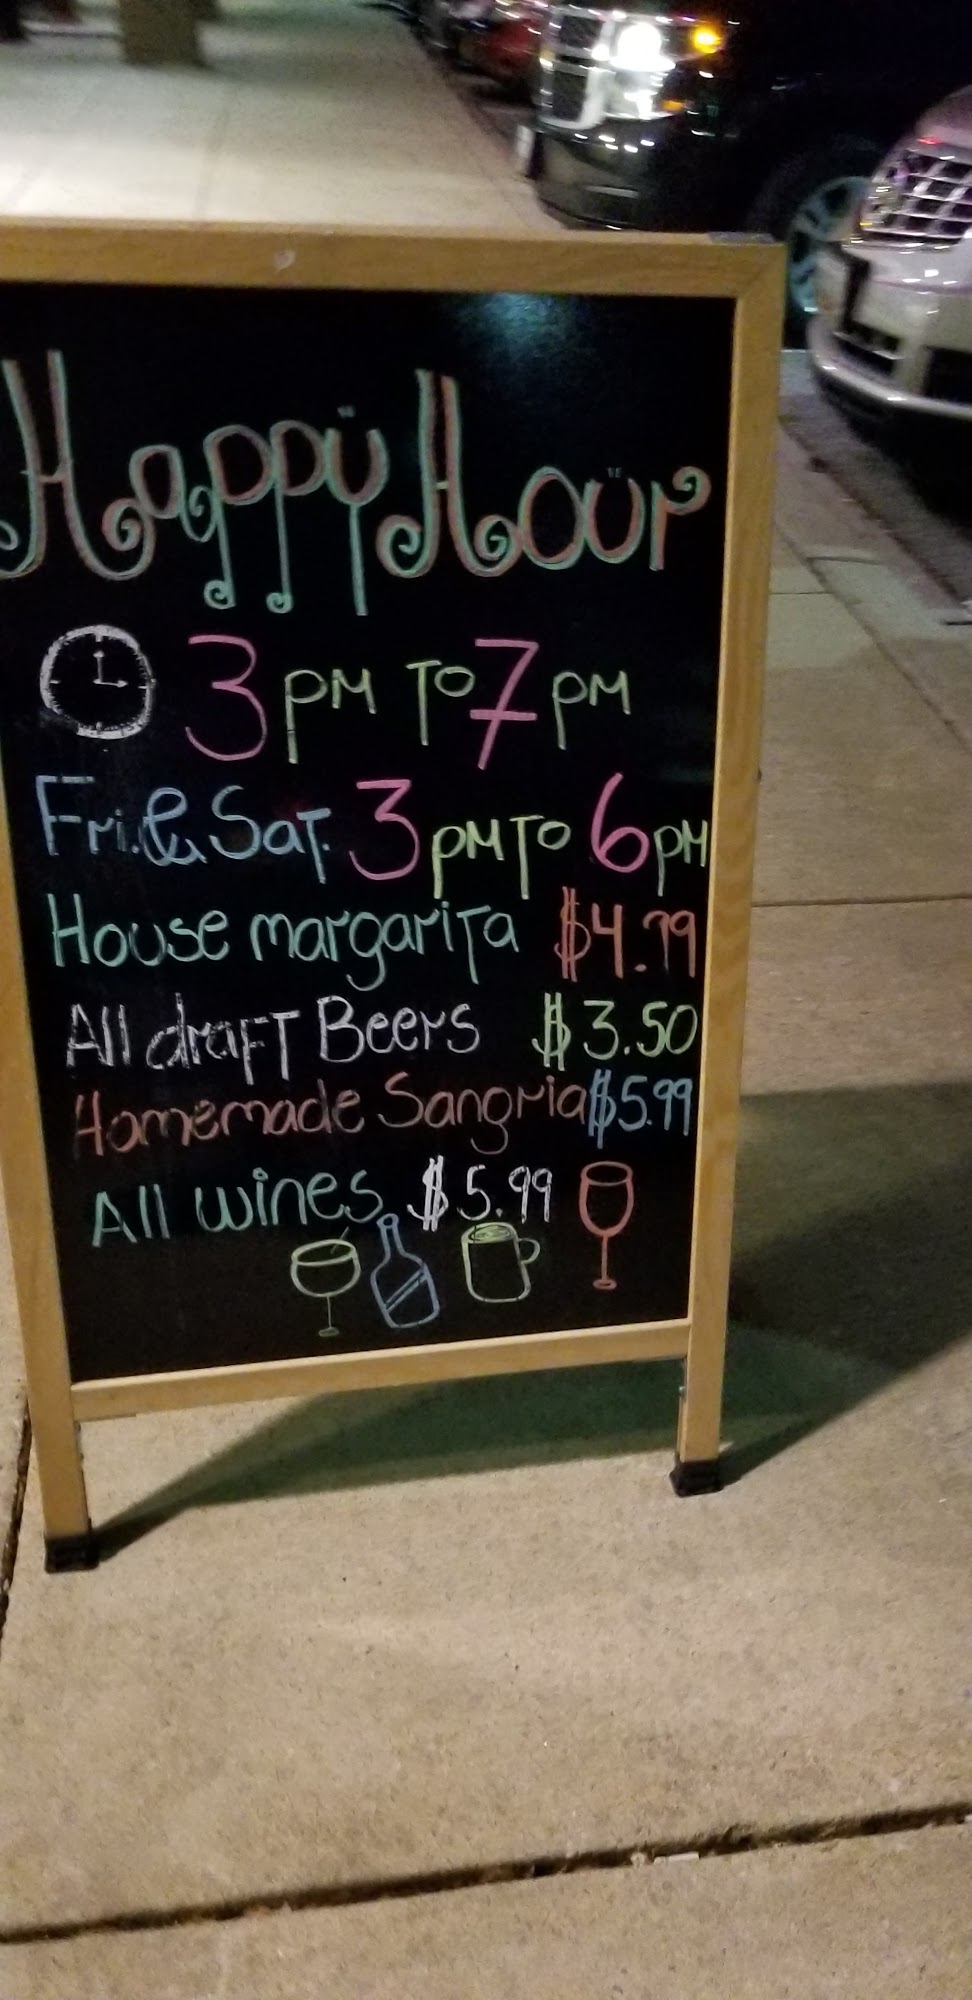 Happy Hour
3 pm To 7 pm
Fri. & Sat. 3 pm To 6 pm
House margarita $4.79
All draft Beers $3.50
Homemade Sangria $5.99
All wines $5.99